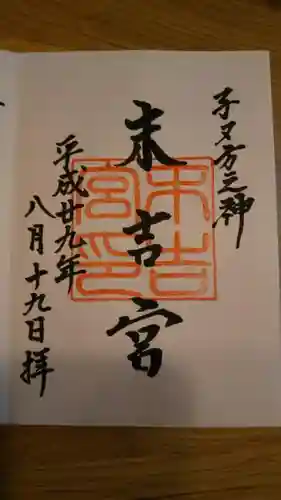 子ヌ方之神
末吉宮
末吉宮印
平成廿九年
八月十九日拝